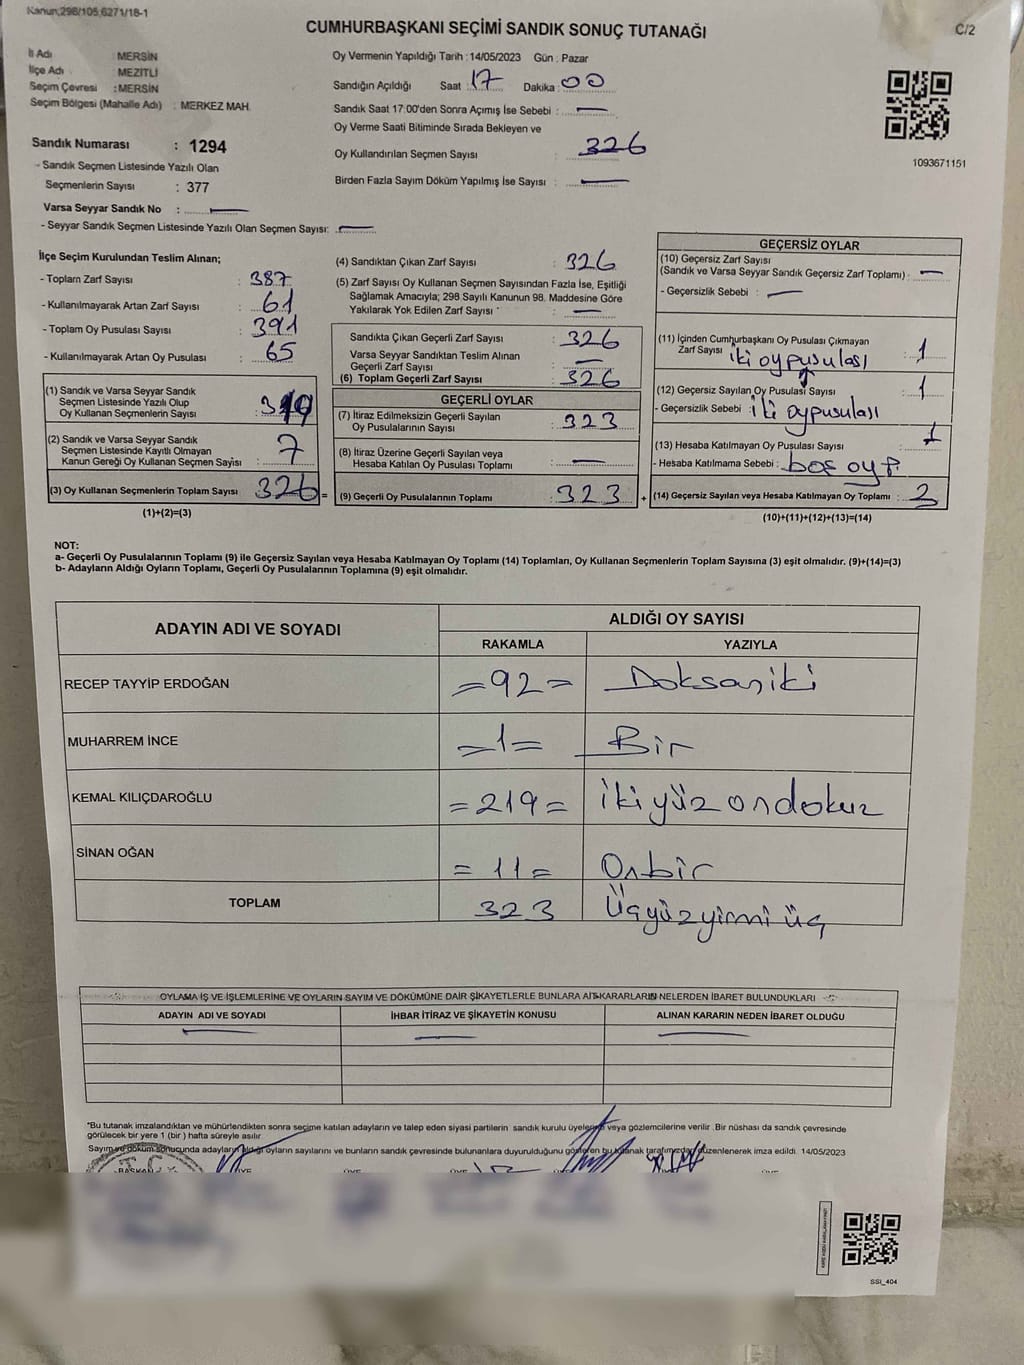 Kanun;298/105,6271/18-1
C/2
CUMHURBAŞKANI SEÇİMİ SANDIK SONUÇ TUTANAĞI
İl Adı : MERSİN
İlçe Adı : MEZİTLİ
Seçim Çevresi : MERSİN
Seçim Bölgesi (Mahalle Adı) : MERKEZ MAH.
Sandık Numarası : 1294
- Sandık Seçmen Listesinde Yazılı Olan
Seçmenlerin Sayısı : 377
Varsa Seyyar Sandık No : —
- Seyyar Sandık Seçmen Listesinde Yazılı Olan Seçmen Sayısı: —
Oy Vermenin Yapıldığı Tarih : 14/05/2023 Gün : Pazar
Sandığın Açıldığı Saat : 17 Dakika : 00
Sandık Saat 17:00'den Sonra Açımış İse Sebebi : —
Oy Verme Saati Bitiminde Sırada Bekleyen ve
Oy Kullandırılan Seçmen Sayısı : 326
Birden Fazla Sayım Döküm Yapılmış İse Sayısı : —
1093671151
İlçe Seçim Kurulundan Teslim Alınan;
- Toplam Zarf Sayısı : 387
- Kullanılmayarak Artan Zarf Sayısı : 61
- Toplam Oy Pusulası Sayısı : 391
- Kullanılmayarak Artan Oy Pusulası : 65
(1) Sandık ve Varsa Seyyar Sandık
Seçmen Listesinde Yazılı Olup
Oy Kullanan Seçmenlerin Sayısı : 319
(2) Sandık ve Varsa Seyyar Sandık
Seçmen Listesinde Kayıtlı Olmayan
Kanun Gereği Oy Kullanan Seçmen Sayısı : 7
(3) Oy Kullanan Seçmenlerin Toplam Sayısı : 326 =
(1)+(2)=(3)
(4) Sandıktan Çıkan Zarf Sayısı : 326
(5) Zarf Sayısı Oy Kullanan Seçmen Sayısından Fazla İse, Eşitliği
Sağlamak Amacıyla; 298 Sayılı Kanunun 98. Maddesine Göre
Yakılarak Yok Edilen Zarf Sayısı : —
Sandıkta Çıkan Geçerli Zarf Sayısı : 326
Varsa Seyyar Sandıktan Teslim Alınan
Geçerli Zarf Sayısı : —
(6) Toplam Geçerli Zarf Sayısı : 326
GEÇERLİ OYLAR
(7) İtiraz Edilmeksizin Geçerli Sayılan
Oy Pusulalarının Sayısı : 323
(8) İtiraz Üzerine Geçerli Sayılan veya
Hesaba Katılan Oy Pusulası Toplamı : —
(9) Geçerli Oy Pusulalarının Toplamı : 323 +
GEÇERSİZ OYLAR
(10) Geçersiz Zarf Sayısı
(Sandık ve Varsa Seyyar Sandık Geçersiz Zarf Toplamı) : —
- Geçersizlik Sebebi : —
(11) İçinden Cumhurbaşkanı Oy Pusulası Çıkmayan
Zarf Sayısı iki oypusulası : 1
(12) Geçersiz Sayılan Oy Pusulası Sayısı : 1
- Geçersizlik Sebebi : iki oypusulası
(13) Hesaba Katılmayan Oy Pusulası Sayısı : 1
- Hesaba Katılmama Sebebi : boş oy
(14) Geçersiz Sayılan veya Hesaba Katılmayan Oy Toplamı : 3
(10)+(11)+(12)+(13)=(14)
NOT:
a- Geçerli Oy Pusulalarının Toplamı (9) ile Geçersiz Sayılan veya Hesaba Katılmayan Oy Toplamı (14) Toplamları, Oy Kullanan Seçmenlerin Toplam Sayısına (3) eşit olmalıdır. (9)+(14)=(3)
b- Adayların Aldığı Oyların Toplamı, Geçerli Oy Pusulalarının Toplamına (9) eşit olmalıdır.
ADAYIN ADI VE SOYADI ALDIĞI OY SAYISI
RAKAMLA YAZIYLA
RECEP TAYYİP ERDOĞAN =92= Doksaniki
MUHARREM İNCE =1= Bir
KEMAL KILIÇDAROĞLU =219= ikiyüzondokuz
SİNAN OĞAN =11= Onbir
TOPLAM 323 Üçyüzyirmi üç
OYLAMA İŞ VE İŞLEMLERİNE VE OYLARIN SAYIM VE DÖKÜMÜNE DAİR ŞİKAYETLERLE BUNLARA AİT KARARLARIN NELERDEN İBARET BULUNDUKLARI
ADAYIN ADI VE SOYADI İHBAR İTİRAZ VE ŞİKAYETİN KONUSU ALINAN KARARIN NEDEN İBARET OLDUĞU
— — —
*Bu tutanak imzalandıktan ve mühürlendikten sonra seçime katılan adayların ve talep eden siyasi partilerin sandık kurulu üyelerine veya gözlemcilerine verilir .Bir nüshası da sandık çevresinde
görülecek bir yere 1 (bir ) hafta süreyle asılır
Sayım ve döküm sonucunda adayların aldığı oyların sayılarını ve bunların sandık çevresinde bulunanlara duyurulduğunu gösteren bu tutanak tarafımızdan düzenlenerek imza edildi. 14/05/2023
SSI_404